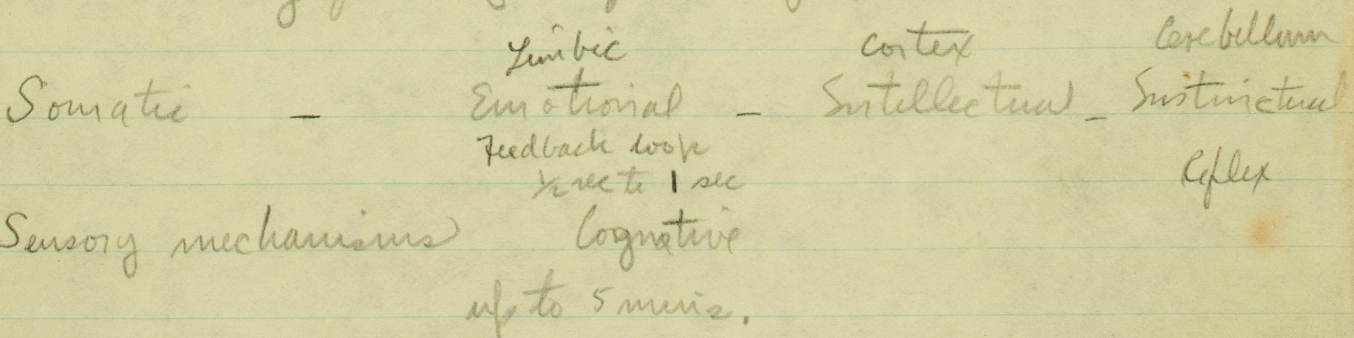 Limbic cortex Cerebellum
Somatic - Emotional - Intellectual - Instinctual
Feedback loop
½ sec to 1 sec Reflex
Sensory mechanisms Cognative
up to 5 mins.